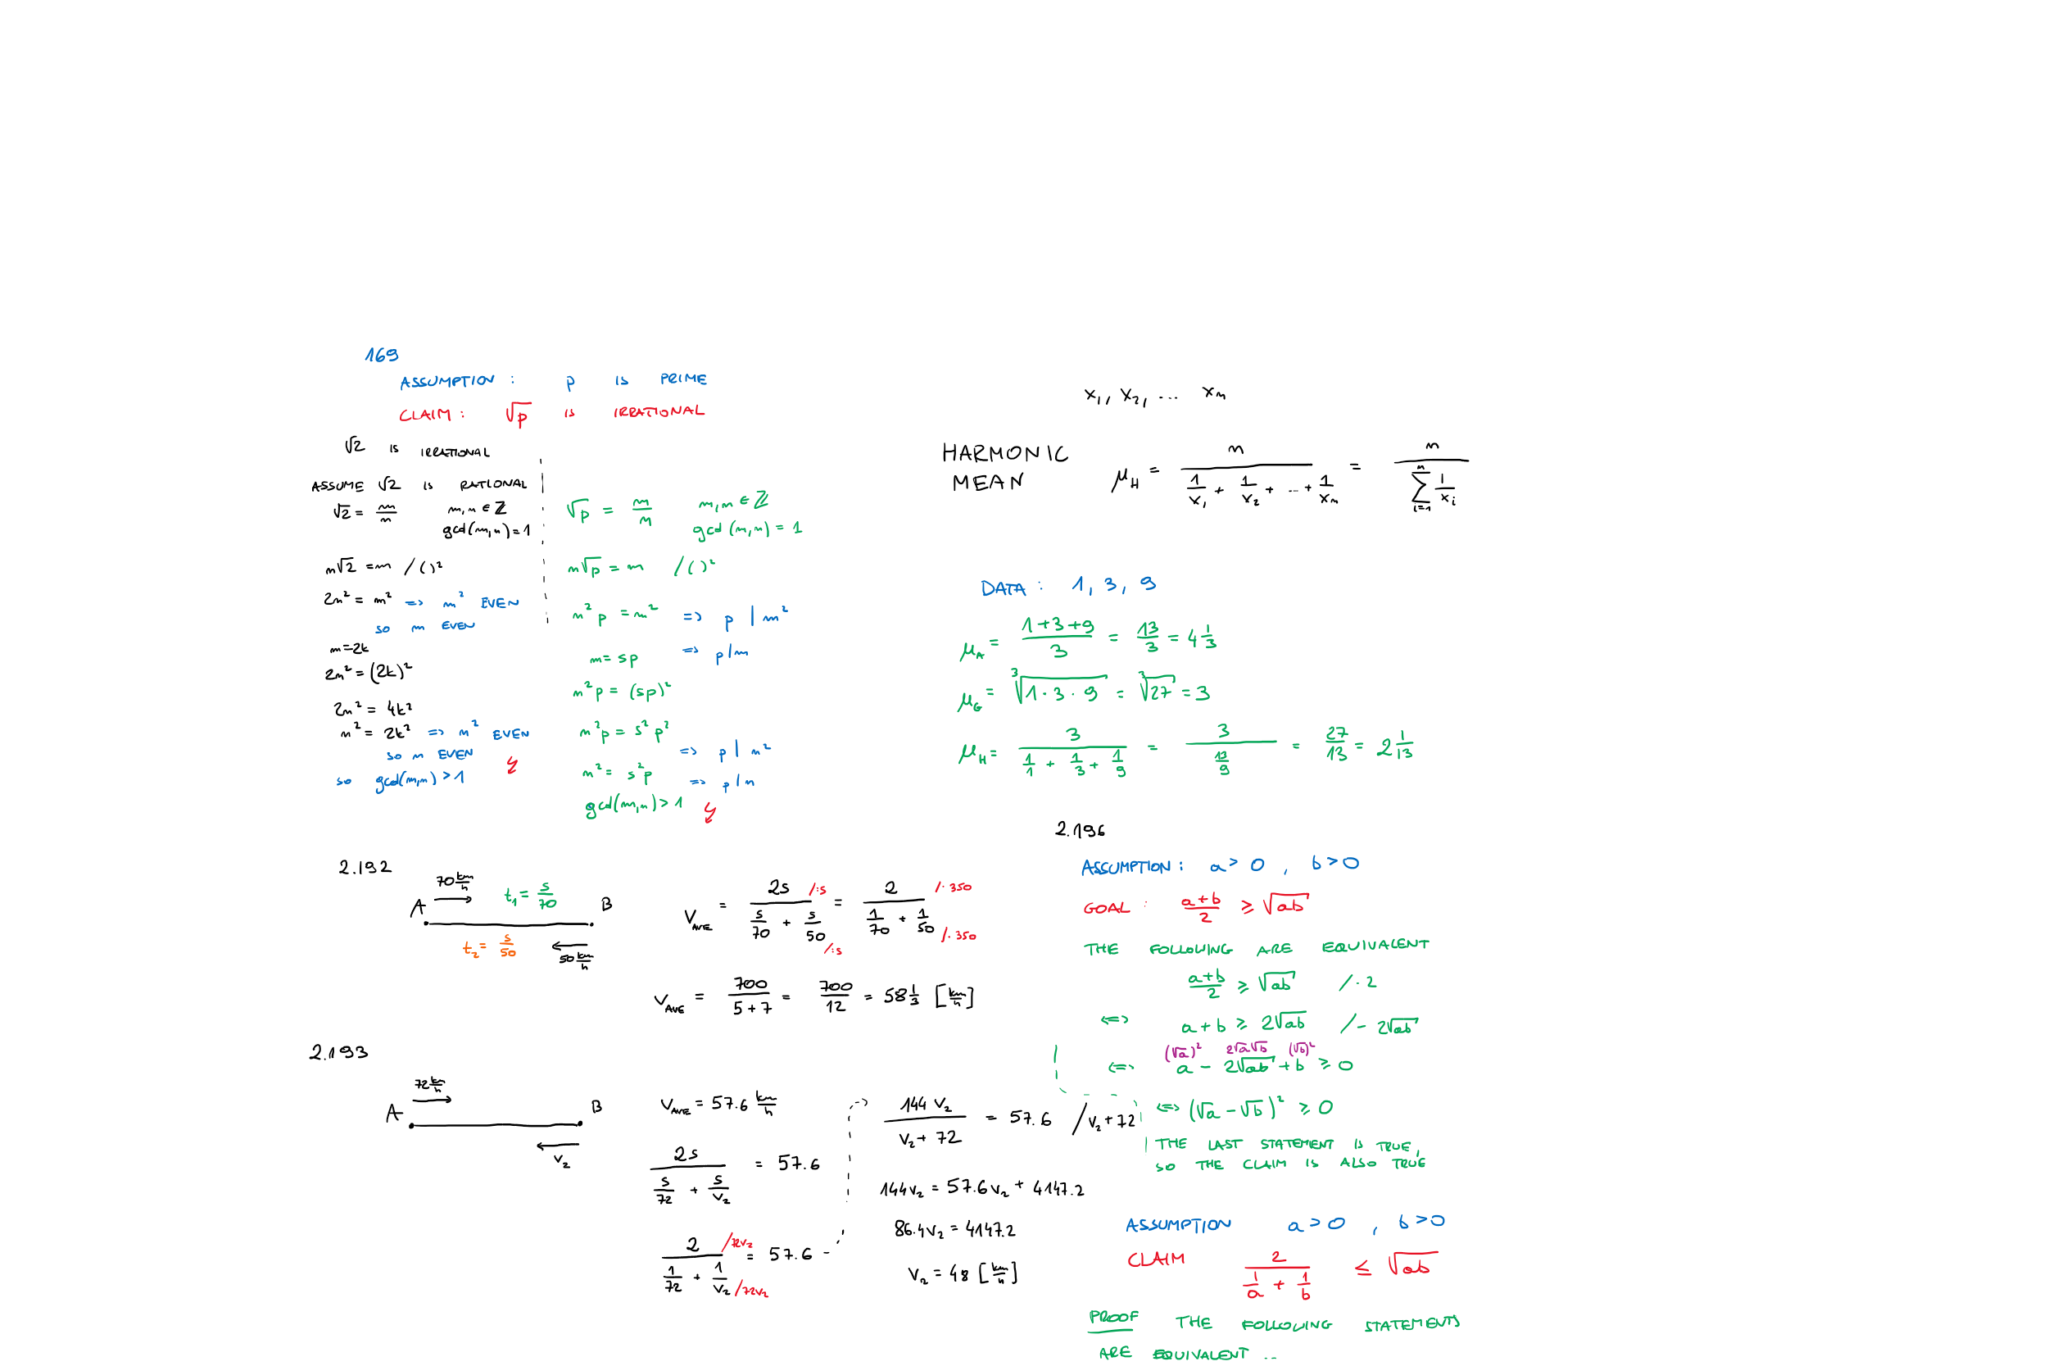 169
ASSUMPTION : p IS PRIME
CLAIM : √p IS IRRATIONAL
√2 IS IRRATIONAL
ASSUME √2 IS RATIONAL
√2 = m/n m,n ∈ ℤ
gcd(m,n) = 1
n√2 = m /( )²
2n² = m² => m² EVEN
SO m EVEN
m=2k
2n² = (2k)²
2n² = 4k²
n² = 2k² => n² EVEN
SO n EVEN
SO gcd(m,n) > 1 ↯
√p = m/n m,n ∈ ℤ
gcd(m,n) = 1
n√p = m /( )²
n² p = m² => p | m²
m = sp => p | m
n² p = (sp)²
n² p = s² p²
=> p | n²
n² = s² p => p | n
gcd(m,n) > 1 ↯
x₁, x₂, ... xₙ
HARMONIC MEAN
μ_H = n / (1/x₁ + 1/x₂ + ... + 1/xₙ) = n / (∑_{i=1}^{n} 1/xᵢ)
DATA : 1, 3, 9
μ_A = (1+3+9)/3 = 13/3 = 4 1/3
μ_G = ³√(1·3·9) = ³√27 = 3
μ_H = 3 / (1/1 + 1/3 + 1/9) = 3 / (13/9) = 27/13 = 2 1/13
2.192
70 km/h t₁ = s/70
A B
t₂ = s/50 50 km/h
V_AVE = 2s / (s/70 + s/50) = 2 / (1/70 + 1/50)
/:s /·350
/:s /·350
V_AVE = 700/(5+7) = 700/12 = 58 1/3 [km/h]
2.193
72 km/h
A B
V₂
V_AVE = 57.6 km/h
2s / (s/72 + s/V₂) = 57.6
2 / (1/72 + 1/V₂) = 57.6
/72V₂
/72V₂
144 V₂ / (V₂ + 72) = 57.6 /V₂+72
144V₂ = 57.6V₂ + 4147.2
86.4V₂ = 4147.2
V₂ = 48 [km/h]
2.196
ASSUMPTION : a > 0 , b > 0
GOAL : (a+b)/2 ≥ √ab
THE FOLLOWING ARE EQUIVALENT
(a+b)/2 ≥ √ab /·2
<=> a+b ≥ 2√ab /-2√ab
(√a)² 2√a√b (√b)²
<=> a - 2√ab + b ≥ 0
<=> (√a - √b)² ≥ 0
THE LAST STATEMENT IS TRUE,
SO THE CLAIM IS ALSO TRUE
ASSUMPTION a > 0 , b > 0
CLAIM 2 / (1/a + 1/b) ≤ √ab
PROOF THE FOLLOWING STATEMENTS
ARE EQUIVALENT ..